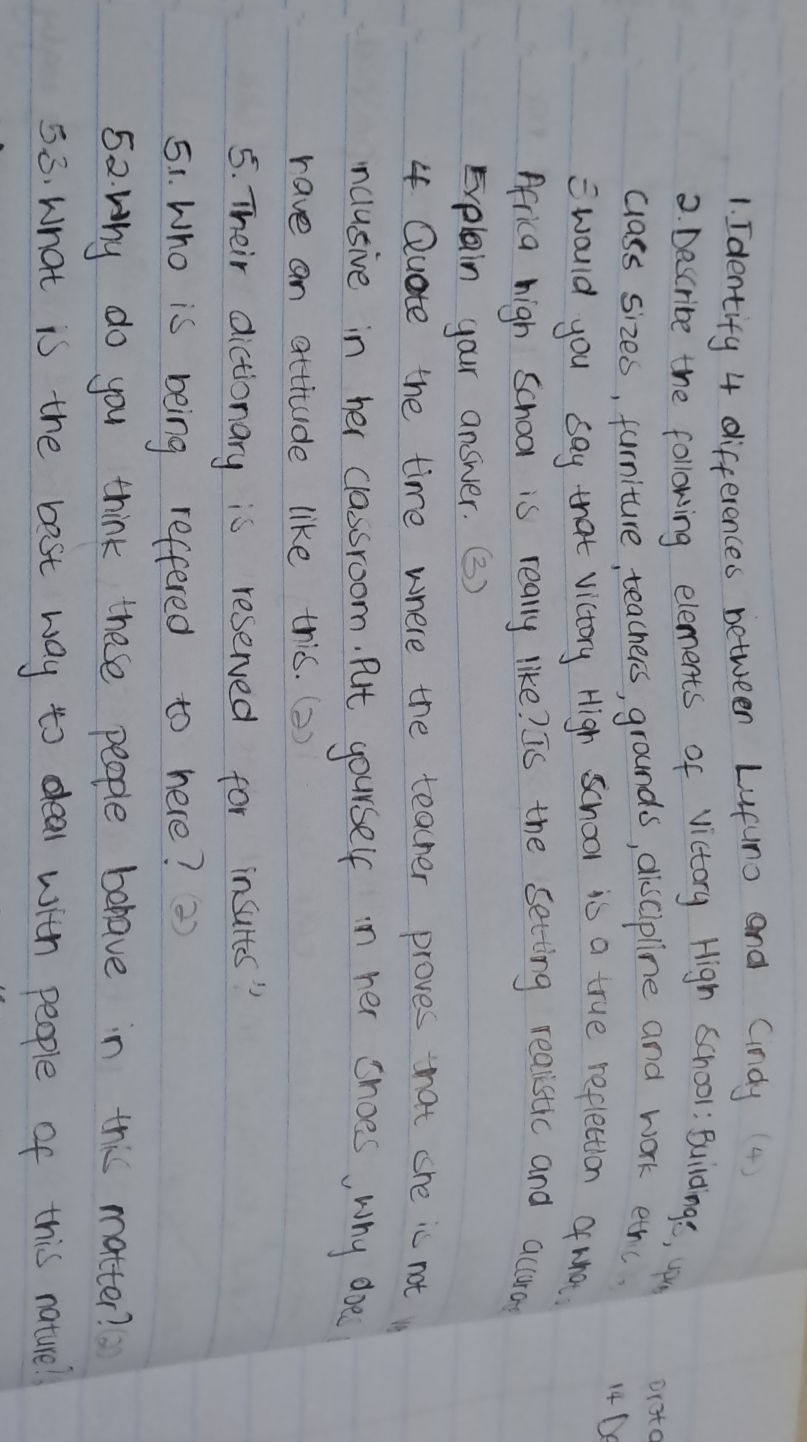 1. Identify 4 differences between Lufuno and Cindy (4)
2. Describe the following elements of Victory High School: Buildings,
class sizes, furniture, teachers, grounds, discipline and work ethic
3 Would you say that Victory High School is a true reflection of what
Africa high school is really like? Is the setting realistic and
Explain your answer. (3)
4. Quote the time where the teacher proves that she is not
inclusive in her classroom. Put yourself in her shoes, why does
have an attitude like this. (2)
5. Their dictionary is reserved for insults"
5.1. Who is being reffered to here? (2)
5.2. Why do you think these people behave in this matter? (2)
5.3. What is the best way to deal with people of this nature?